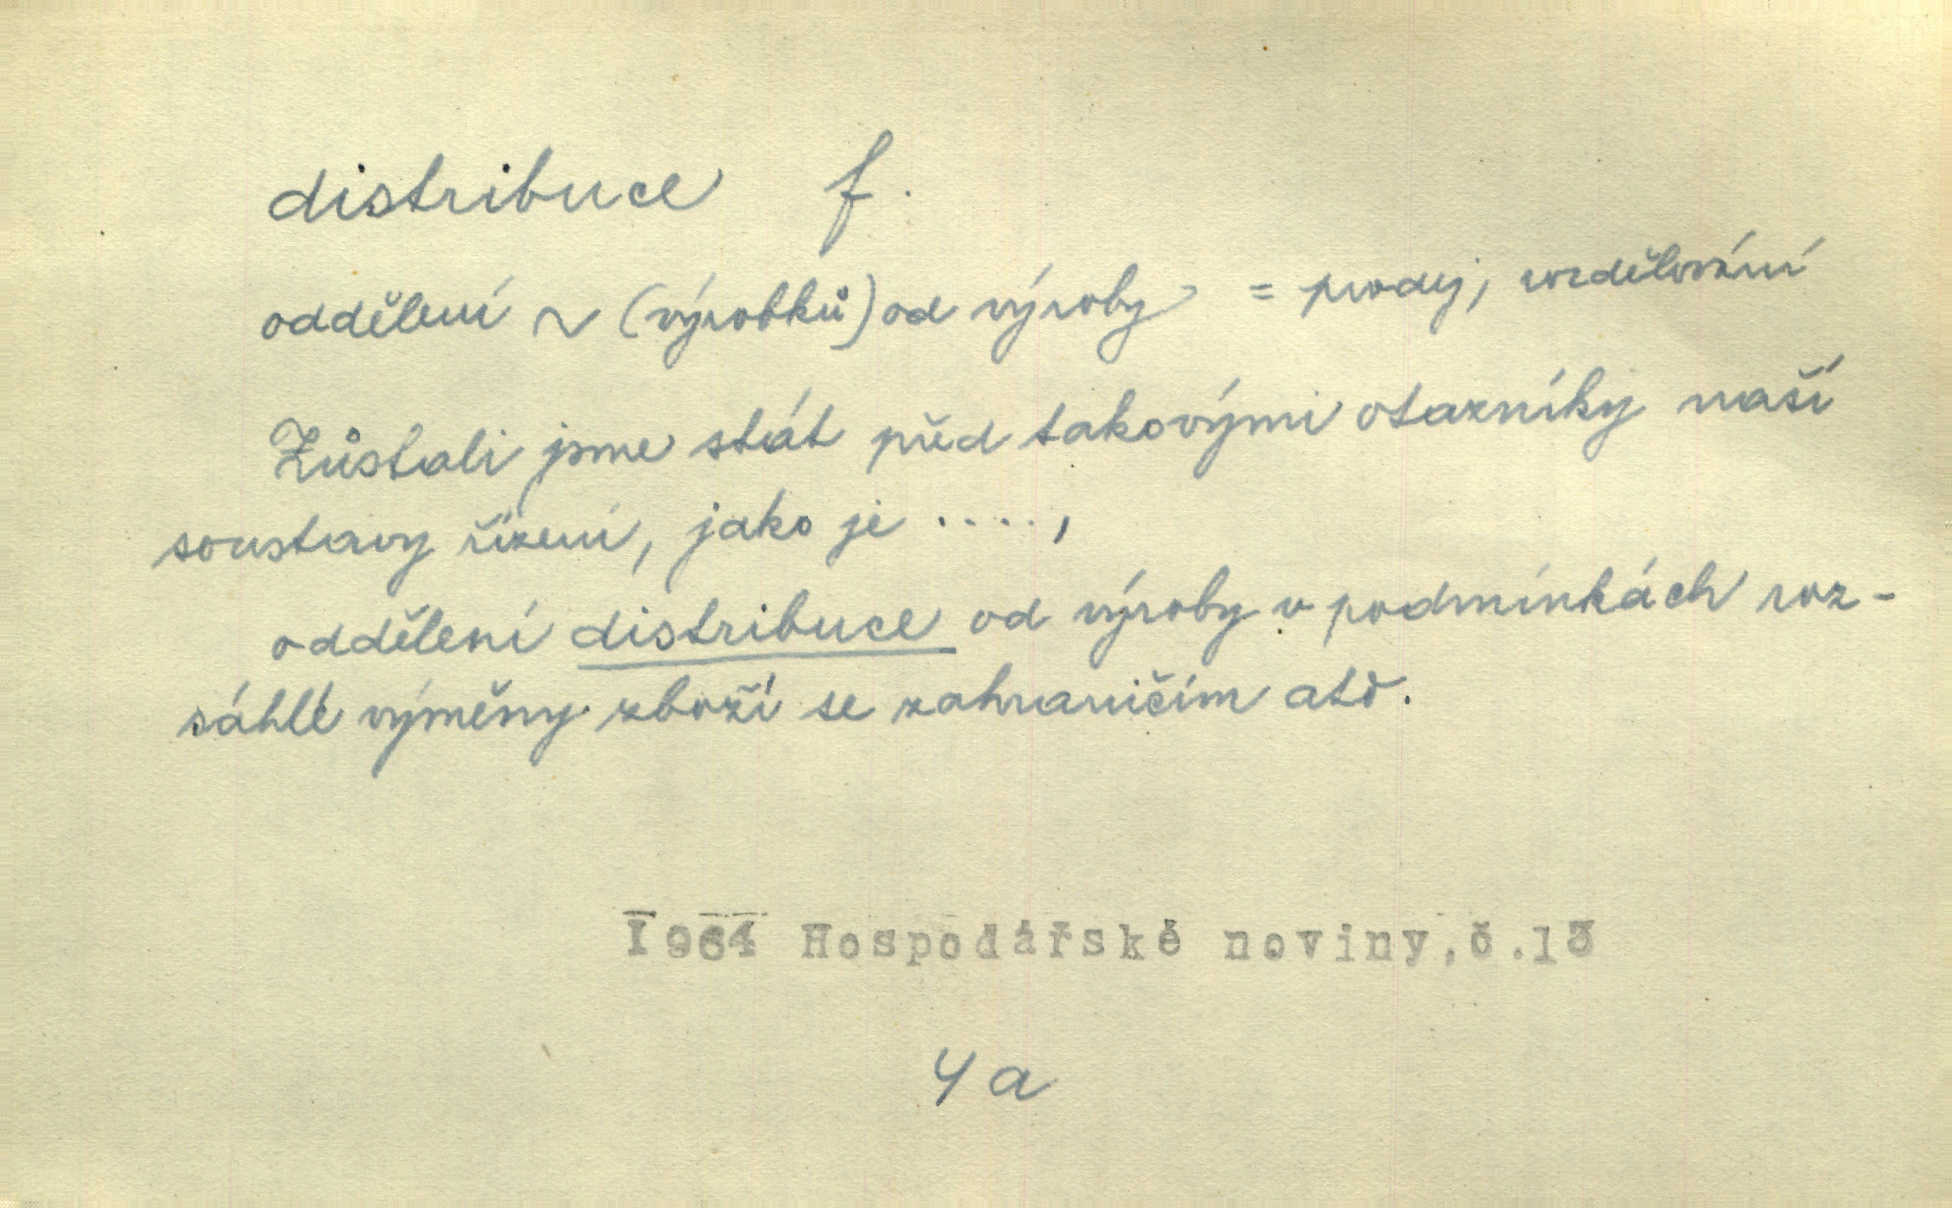 distribuce f.
oddělení ~ (výrobků) od výroby = prodej, rozdělování
Zůstali jsme stát před takovými otazníky naší
soustavy řízení, jako je ....,
oddělení distribuce od výroby v podmínkách roz-
sáhlé výměny zboží se zahraničím atd.
1964 Hospodářské noviny, č.
4a